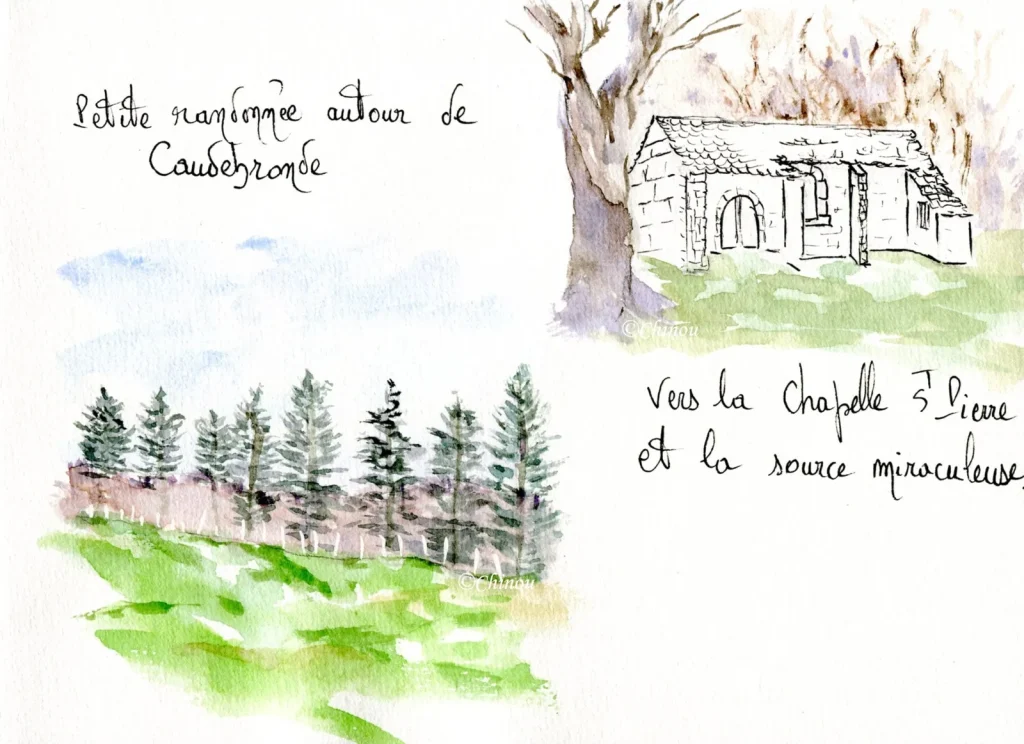 Petite randonnée autour de
Caudebronde
©Chinou
vers la chapelle St Pierre
et la source miraculeuse.
©Chinou